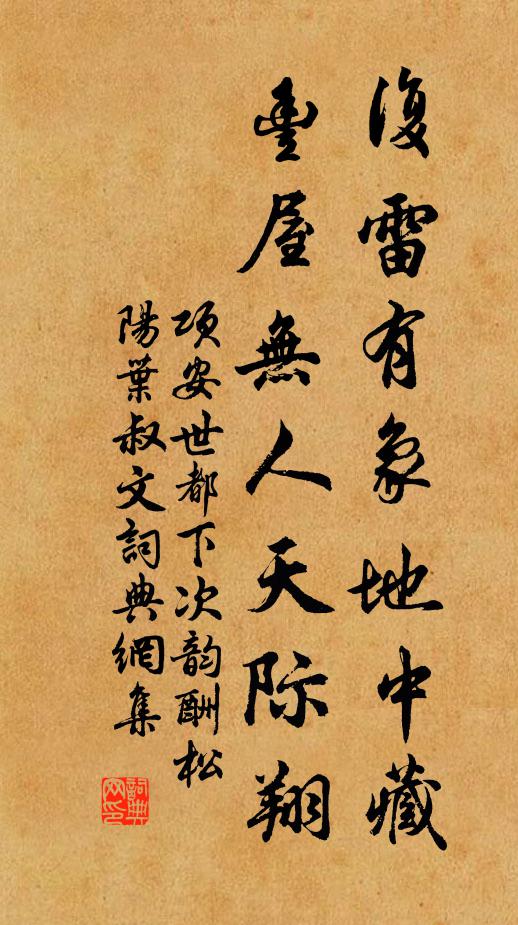 復雷有象地中藏
豊屋無人天际翔
项安世都下次韵酬松
陽葉叔文詞典網集
詞典网印